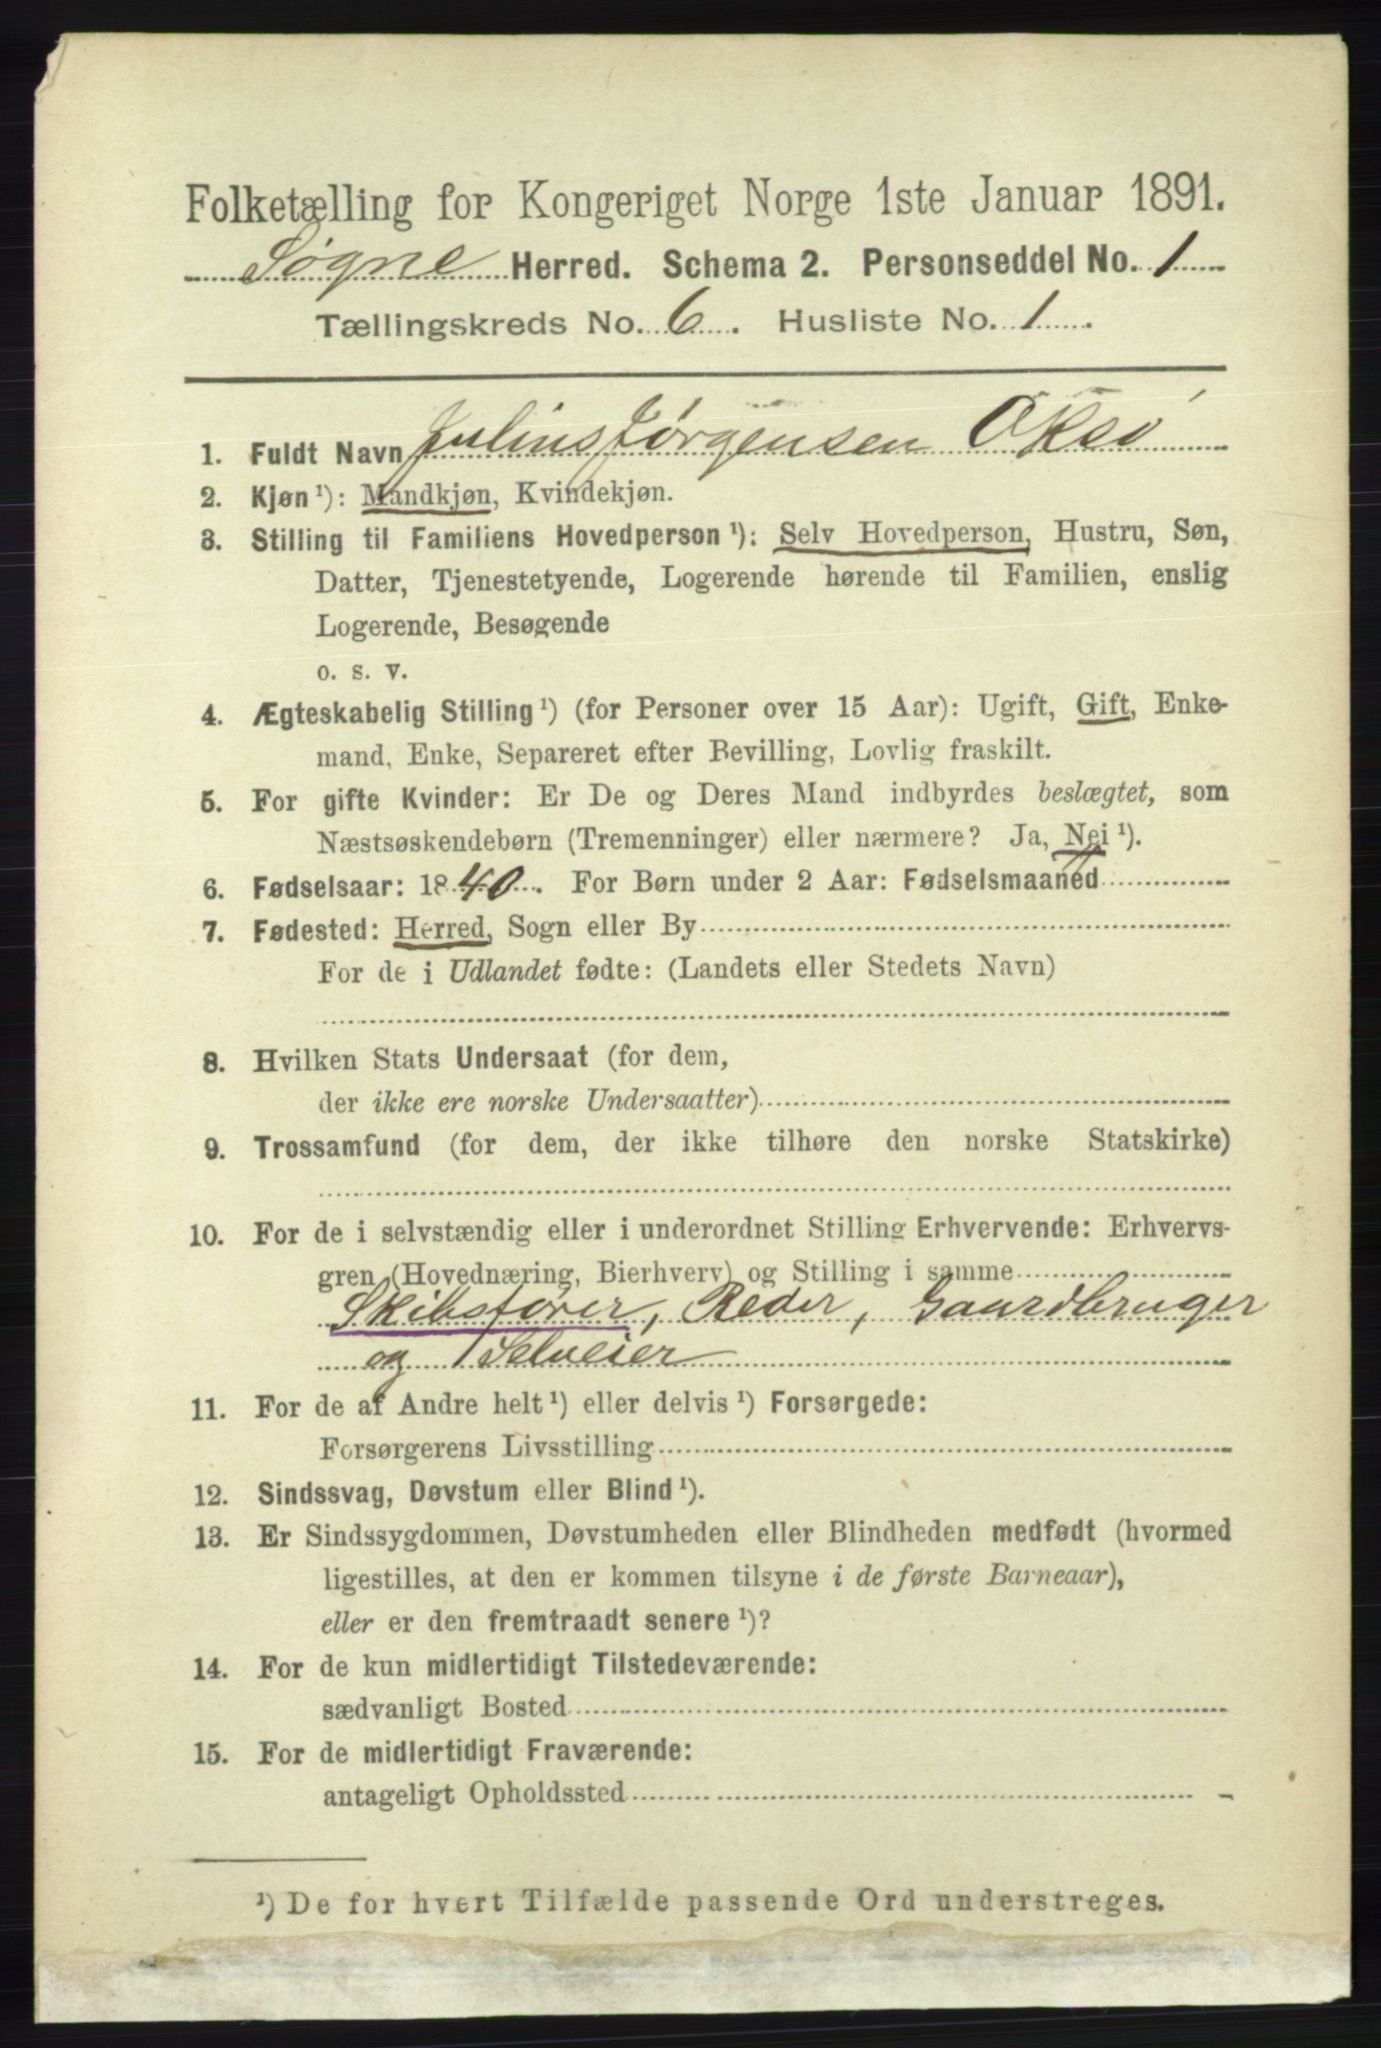 Folketælling for Kongeriget Norge 1ste Januar 1891.
Søgne Herred. Schema 2. Personseddel No. 1
Tællingskreds No. 6. Husliste No. 1.
1. Fuldt Navn Julius Jørgensen Oksø
2. Kjøn ¹): Mandkjøn, Kvindekjøn.
3. Stilling til Familiens Hovedperson ¹): Selv Hovedperson, Hustru, Søn,
Datter, Tjenestetyende, Logerende hørende til Familien, enslig
Logerende, Besøgende
o. s. v.
4. Ægteskabelig Stilling ¹) (for Personer over 15 Aar): Ugift, Gift, Enke-
mand, Enke, Separeret efter Bevilling, Lovlig fraskilt.
5. For gifte Kvinder: Er De og Deres Mand indbyrdes beslægtet, som
Næstsøskendebørn (Tremenninger) eller nærmere? Ja, Nei ¹).
6. Fødselsaar: 1840. For Børn under 2 Aar: Fødselsmaaned
7. Fødested: Herred, Sogn eller By
For de i Udlandet fødte: (Landets eller Stedets Navn)
8. Hvilken Stats Undersaat (for dem,
der ikke ere norske Undersaatter)
9. Trossamfund (for dem, der ikke tilhøre den norske Statskirke)
10. For de i selvstændig eller i underordnet Stilling Erhvervende: Erhvervs-
gren (Hovednæring, Bierhverv) og Stilling i samme
Skibsfører, Reder, Gaardbruger
og Selveier
11. For de af Andre helt ¹) eller delvis ¹) Forsørgede:
Forsørgerens Livsstilling
12. Sindssvag, Døvstum eller Blind ¹).
13. Er Sindssygdommen, Døvstumheden eller Blindheden medfødt (hvormed
ligestilles, at den er kommen tilsyne i de første Barneaar),
eller er den fremtraadt senere ¹)?
14. For de kun midlertidigt Tilstedeværende:
sædvanligt Bosted
15. For de midlertidigt Fraværende:
antageligt Opholdssted
¹) De for hvert Tilfælde passende Ord understreges.